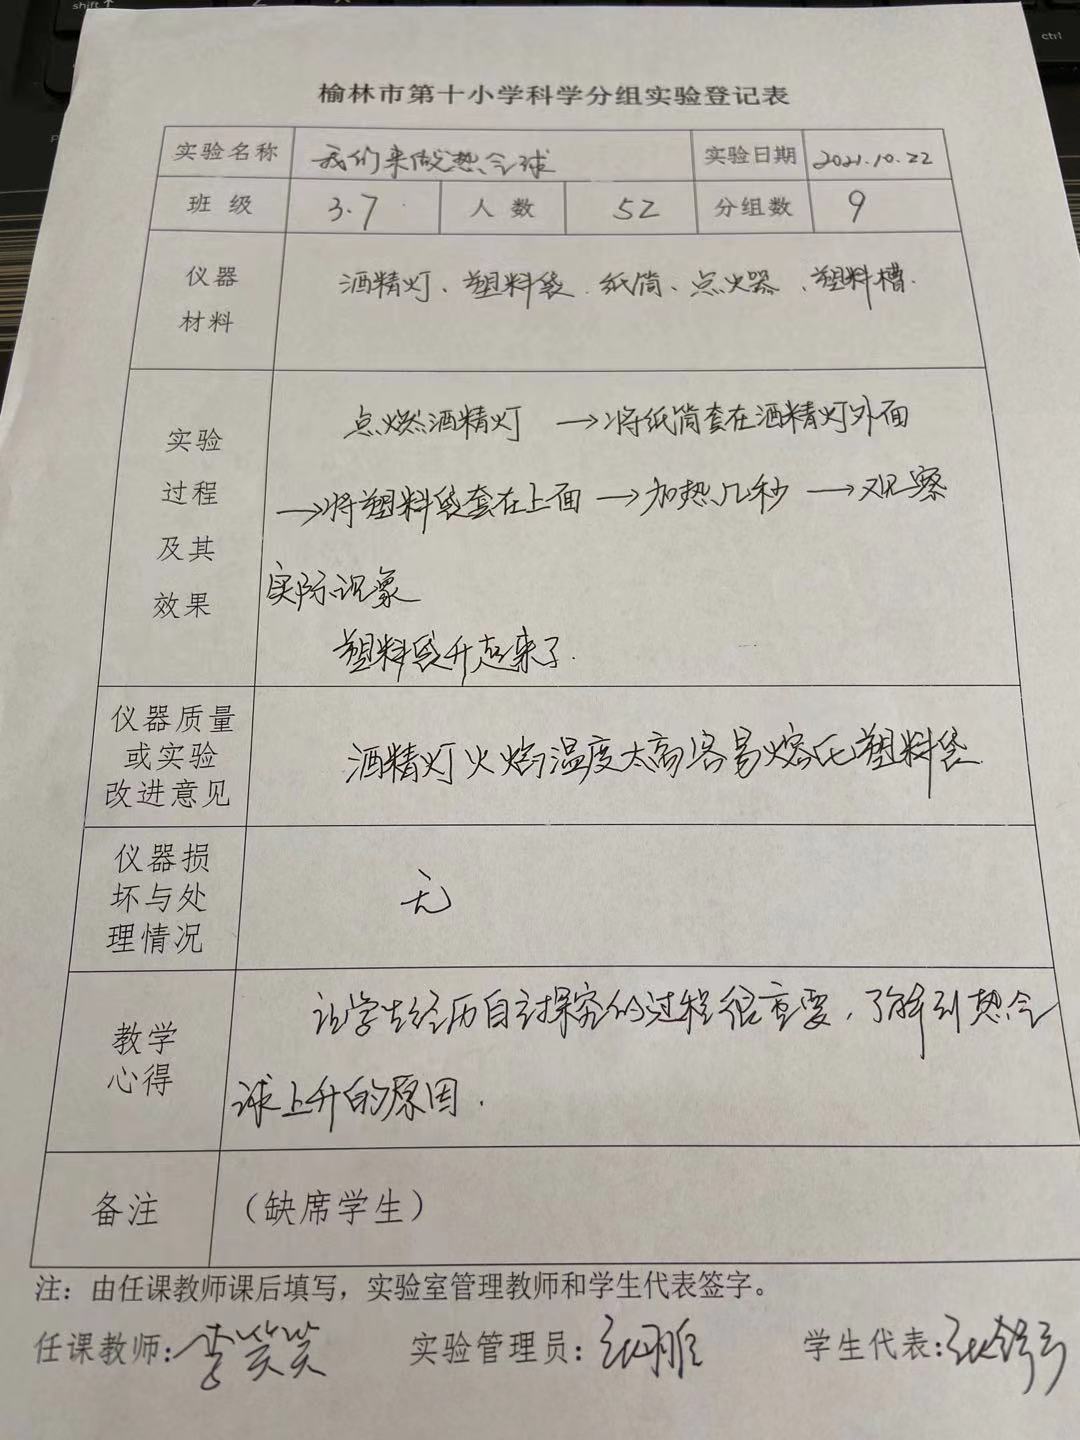 shift
ctrl
榆林市第十小学科学分组实验登记表
实验名称 我们来做热气球 实验日期 2021.10.22
班级 3.7 人数 52 分组数 9
仪器
材料
酒精灯、塑料袋、纸筒、点火器、塑料槽.
实验
过程
及其
效果
点燃酒精灯 →将纸筒套在酒精灯外面
→将塑料袋套在上面→加热几秒→观察
实际现象
塑料袋升起来了.
仪器质量
或实验
改进意见
酒精灯火焰温度太高容易熔化塑料袋
仪器损
坏与处
理情况
无
教学
心得
让学生经历自主探究的过程很重要,了解到热气
球上升的原因.
备注 (缺席学生)
注:由任课教师课后填写,实验室管理教师和学生代表签字。
任课教师:李笑笑 实验管理员: 学生代表: